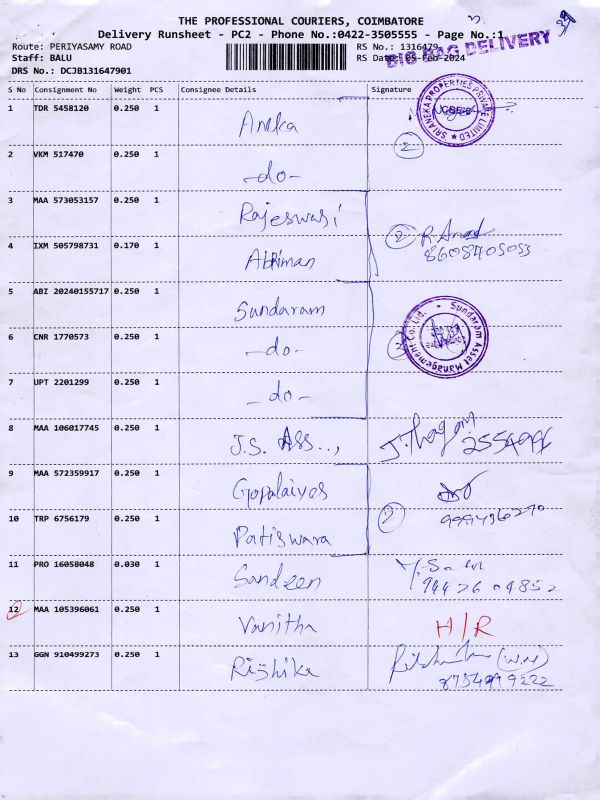 THE PROFESSIONAL COURIERS, COIMBATORE
Delivery Runsheet - PC2 - Phone No.:0422-3505555 - Page No.:1
Route: PERIYASAMY ROAD RS No.: 1316479
Staff: BALU RS Date: 05-Feb-2024
BIG BAG DELIVERY
DRS No.: DCJB131647901
S No Consignment No Weight PCS Consignee Details Signature
1 TDR 5458120 0.250 1 Aneka
SRI ANEKA PROPERTIES PRIVATE LIMITED
2
2 VKM 517470 0.250 1 -do-
3 MAA 573053157 0.250 1 Rajeswari
2 R. Anand
8608405053
4 IXM 505798731 0.170 1 Abhiman
5 ABI 20240155717 0.250 1 Sundaram
Sundaram Asset Management Co. Ltd.
3
6 CNR 1770573 0.250 1 -do-
7 UPT 2201299 0.250 1 -do-
8 MAA 106017745 0.250 1 J.S. Ass..,
9 MAA 572359917 0.250 1 Gopalaiyes
2
10 TRP 6756179 0.250 1 Patiswara
11 PRO 16058048 0.030 1 Sandeen
12 MAA 105396061 0.250 1 Vanitha H/R
13 GGN 910499273 0.250 1 Rishika